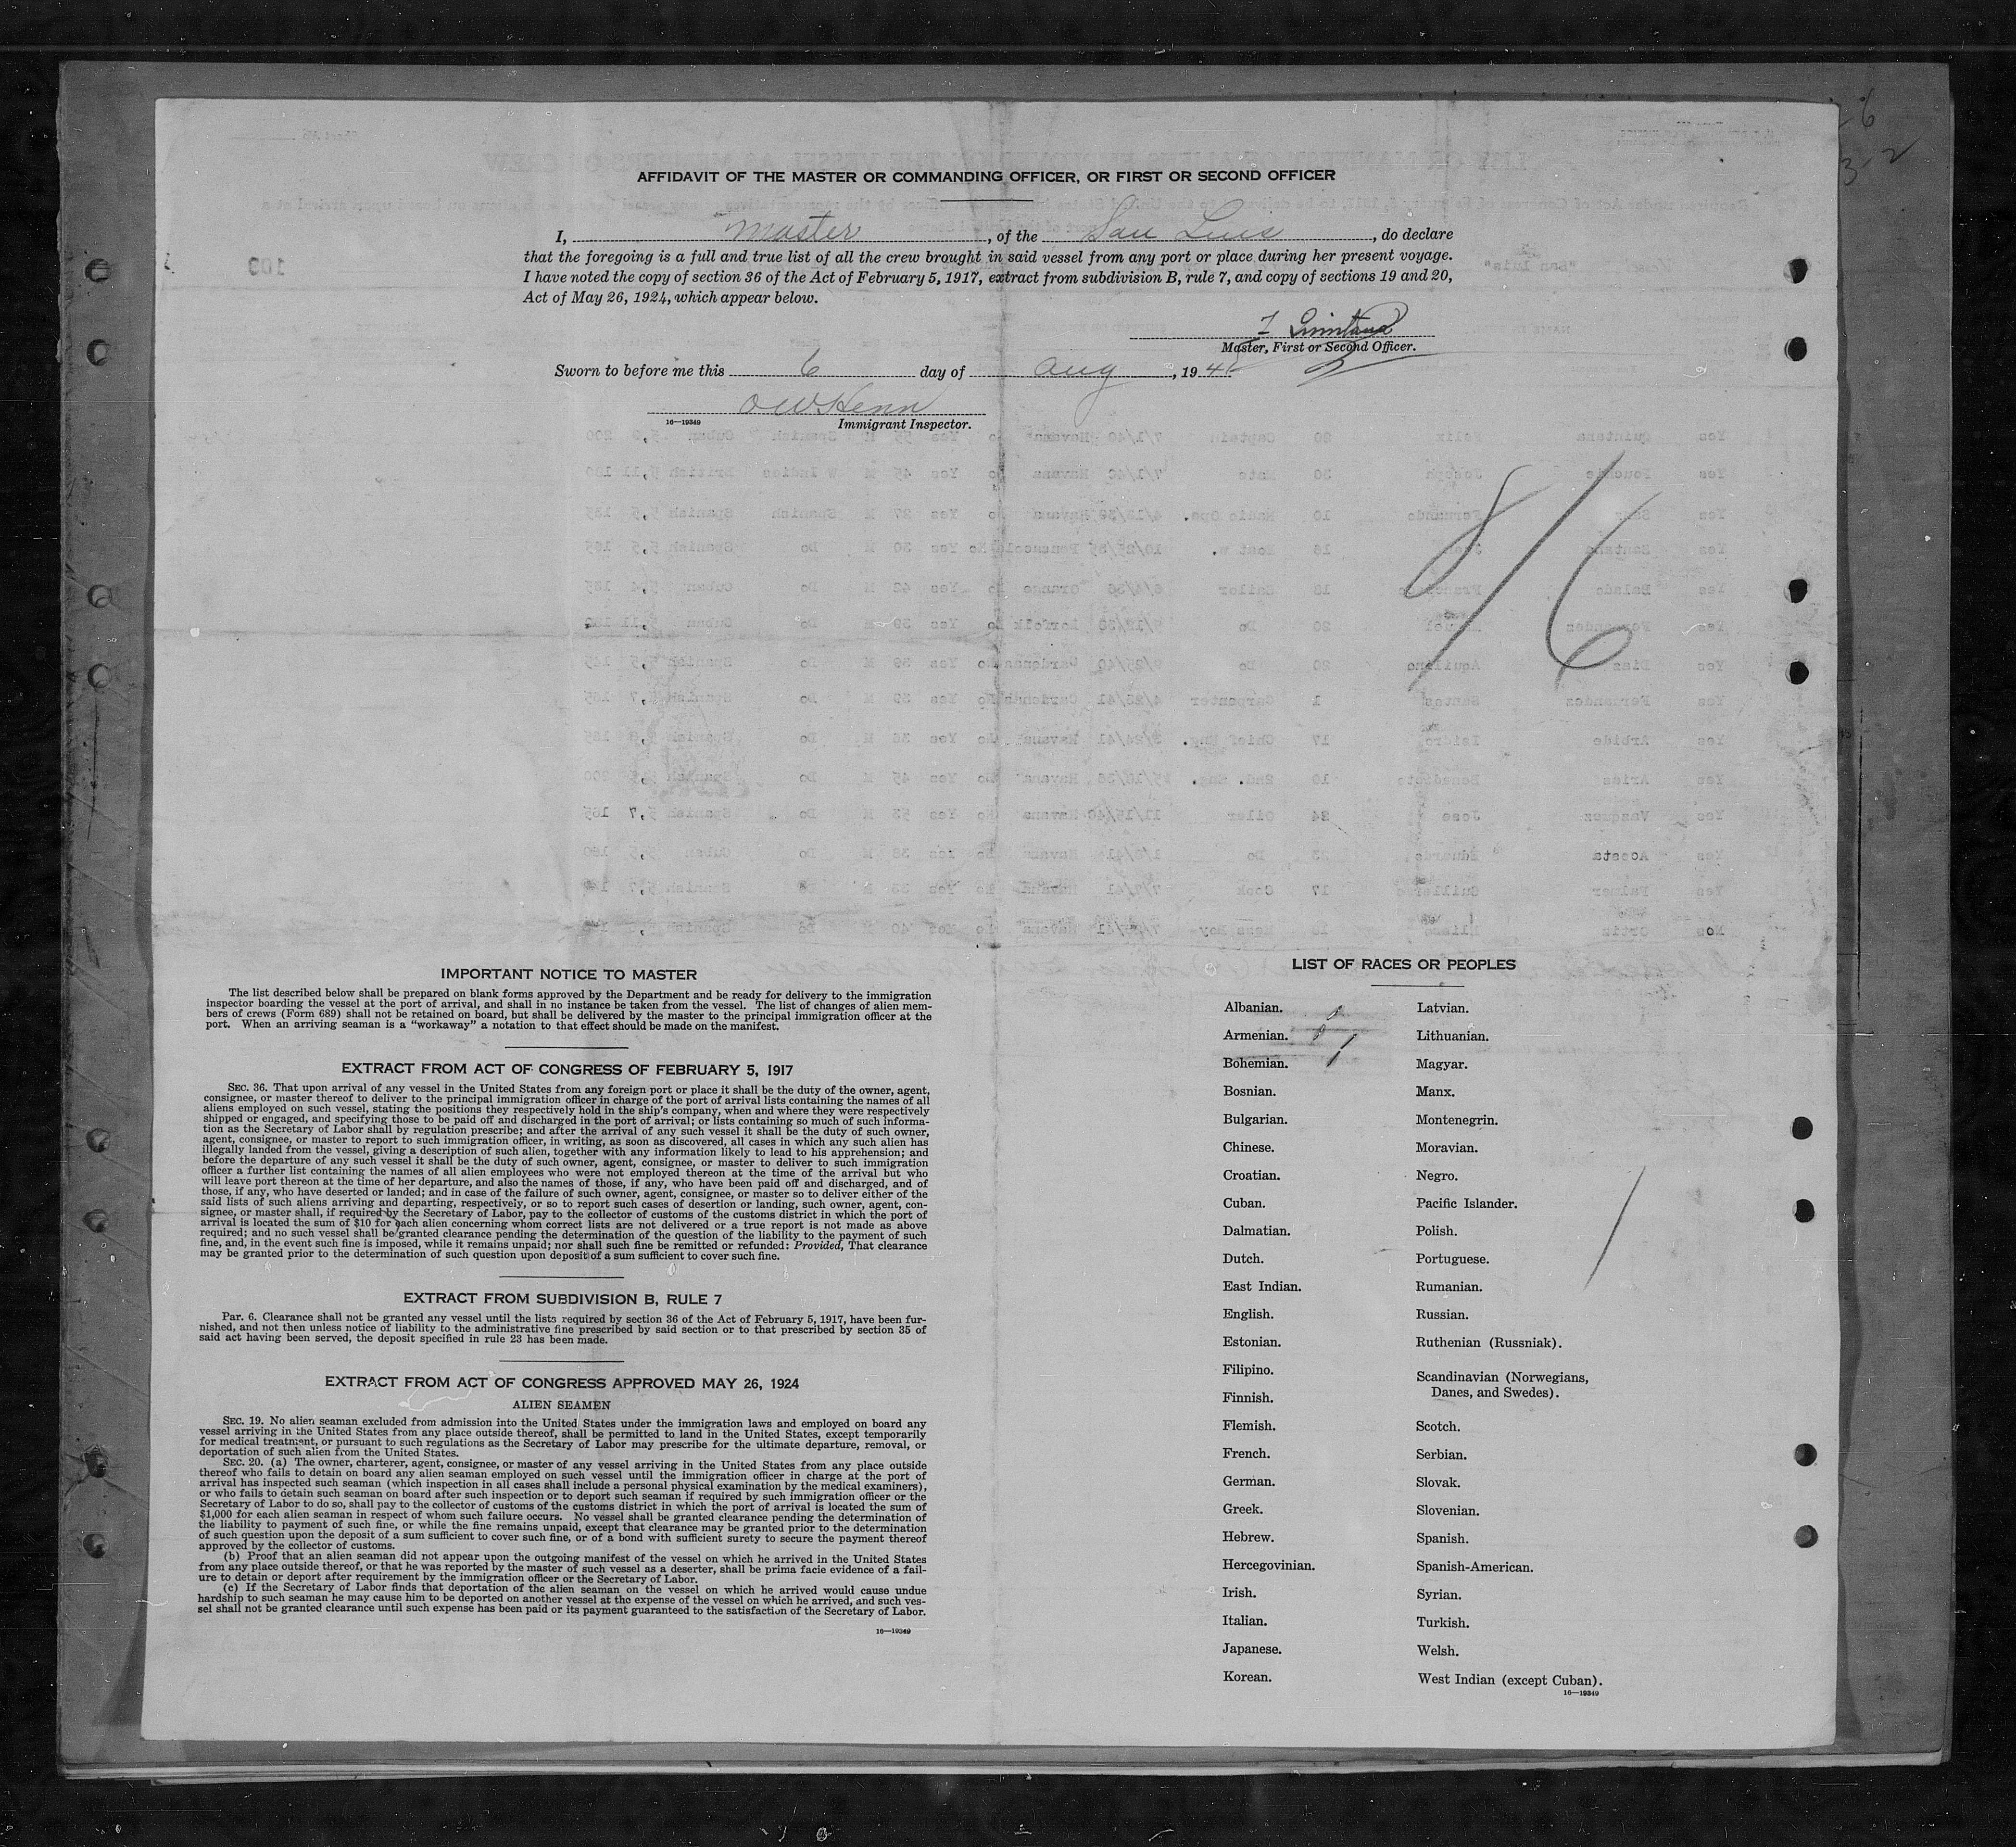 AFFIDAVIT OF THE MASTER OR COMMANDING OFFICER, OR FIRST OR SECOND OFFICER
I, Master, of the San Luis, do declare
that the foregoing is a full and true list of all the crew brought in said vessel from any port or place during her present voyage.
I have noted the copy of section 36 of the Act of February 5, 1917, extract from subdivision B, rule 7, and copy of sections 19 and 20,
Act of May 26, 1924, which appear below.
Quintana
Master, First or Second Officer.
Sworn to before me this 6 day of Aug, 1941
16—19349 Immigrant Inspector.
8/6
IMPORTANT NOTICE TO MASTER
The list described below shall be prepared on blank forms approved by the Department and be ready for delivery to the immigration
inspector boarding the vessel at the port of arrival, and shall in no instance be taken from the vessel. The list of changes of alien mem-
bers of crews (Form 689) shall not be retained on board, but shall be delivered by the master to the principal immigration officer at the
port. When an arriving seaman is a "workaway" a notation to that effect should be made on the manifest.
EXTRACT FROM ACT OF CONGRESS OF FEBRUARY 5, 1917
SEC. 36. That upon arrival of any vessel in the United States from any foreign port or place it shall be the duty of the owner, agent,
consignee, or master thereof to deliver to the principal immigration officer in charge of the port of arrival lists containing the names of all
aliens employed on such vessel, stating the positions they respectively hold in the ship's company, when and where they were respectively
shipped or engaged, and specifying those to be paid off and discharged in the port of arrival; or lists containing so much of such informa-
tion as the Secretary of Labor shall by regulation prescribe; and after the arrival of any such vessel it shall be the duty of such owner,
agent, consignee, or master to report to such immigration officer, in writing, as soon as discovered, all cases in which any such alien has
illegally landed from the vessel, giving a description of such alien, together with any information likely to lead to his apprehension; and
before the departure of any such vessel it shall be the duty of such owner, agent, consignee, or master to deliver to such immigration
officer a further list containing the names of all alien employees who were not employed thereon at the time of the arrival but who
will leave port thereon at the time of her departure, and also the names of those, if any, who have been paid off and discharged, and of
those, if any, who have deserted or landed; and in case of the failure of such owner, agent, consignee, or master so to deliver either of the
said lists of such aliens arriving and departing, respectively, or so to report such cases of desertion or landing, such owner, agent, con-
signee, or master shall, if required by the Secretary of Labor, pay to the collector of customs of the customs district in which the port of
arrival is located the sum of $10 for each alien concerning whom correct lists are not delivered or a true report is not made as above
required; and no such vessel shall be granted clearance pending the determination of the question of the liability to the payment of such
fine, and, in the event such fine is imposed, while it remains unpaid; nor shall such fine be remitted or refunded: Provided, That clearance
may be granted prior to the determination of such question upon deposit of a sum sufficient to cover such fine.
EXTRACT FROM SUBDIVISION B, RULE 7
Par. 6. Clearance shall not be granted any vessel until the lists required by section 36 of the Act of February 5, 1917, have been fur-
nished, and not then unless notice of liability to the administrative fine prescribed by said section or to that prescribed by section 35 of
said act having been served, the deposit specified in rule 23 has been made.
EXTRACT FROM ACT OF CONGRESS APPROVED MAY 26, 1924
ALIEN SEAMEN
SEC. 19. No alien seaman excluded from admission into the United States under the immigration laws and employed on board any
vessel arriving in the United States from any place outside thereof, shall be permitted to land in the United States, except temporarily
for medical treatment, or pursuant to such regulations as the Secretary of Labor may prescribe for the ultimate departure, removal, or
deportation of such alien from the United States.
SEC. 20. (a) The owner, charterer, agent, consignee, or master of any vessel arriving in the United States from any place outside
thereof who fails to detain on board any alien seaman employed on such vessel until the immigration officer in charge at the port of
arrival has inspected such seaman (which inspection in all cases shall include a personal physical examination by the medical examiners),
or who fails to detain such seaman on board after such inspection or to deport such seaman if required by such immigration officer or the
Secretary of Labor to do so, shall pay to the collector of customs of the customs district in which the port of arrival is located the sum of
$1,000 for each alien seaman in respect of whom such failure occurs. No vessel shall be granted clearance pending the determination of
the liability to payment of such fine, or while the fine remains unpaid, except that clearance may be granted prior to the determination
of such question upon the deposit of a sum sufficient to cover such fine, or of a bond with sufficient surety to secure the payment thereof
approved by the collector of customs.
(b) Proof that an alien seaman did not appear upon the outgoing manifest of the vessel on which he arrived in the United States
from any place outside thereof, or that he was reported by the master of such vessel as a deserter, shall be prima facie evidence of a fail-
ure to detain or deport after requirement by the immigration officer or the Secretary of Labor.
(c) If the Secretary of Labor finds that deportation of the alien seaman on the vessel on which he arrived would cause undue
hardship to such seaman he may cause him to be deported on another vessel at the expense of the vessel on which he arrived, and such ves-
sel shall not be granted clearance until such expense has been paid or its payment guaranteed to the satisfaction of the Secretary of Labor.
16—19349
LIST OF RACES OR PEOPLES
Albanian.
Armenian.
Bohemian.
Bosnian.
Bulgarian.
Chinese.
Croatian.
Cuban.
Dalmatian.
Dutch.
East Indian.
English.
Estonian.
Filipino.
Finnish.
Flemish.
French.
German.
Greek.
Hebrew.
Hercegovinian.
Irish.
Italian.
Japanese.
Korean.
Latvian.
Lithuanian.
Magyar.
Manx.
Montenegrin.
Moravian.
Negro.
Pacific Islander.
Polish.
Portuguese.
Rumanian.
Russian.
Ruthenian (Russniak).
Scandinavian (Norwegians,
Danes, and Swedes).
Scotch.
Serbian.
Slovak.
Slovenian.
Spanish.
Spanish-American.
Syrian.
Turkish.
Welsh.
West Indian (except Cuban).
16—19349